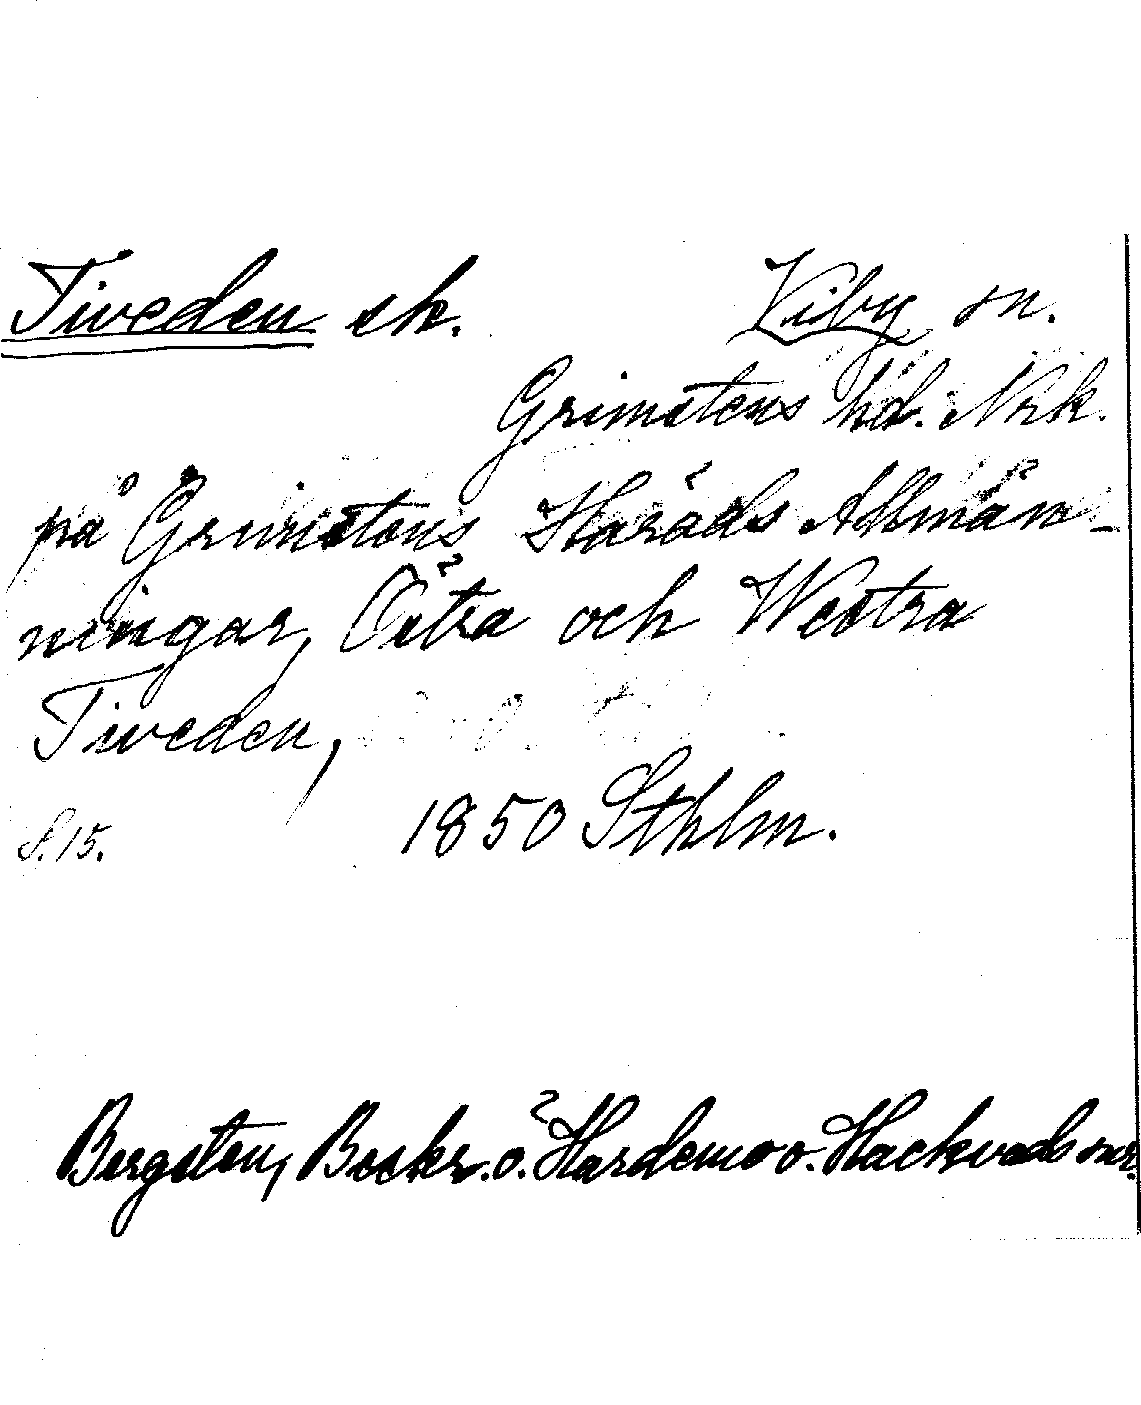 Tiveden sk. Viby sn.
Grimstens hd. Nrk.
på Grimstens Härads Allmän-
ningar, Östra och Westra
Tiveden,
S. 15. 1850 Sthlm.
Bergsten, Beskr. ö. Hardemo o. Hackvads snr.